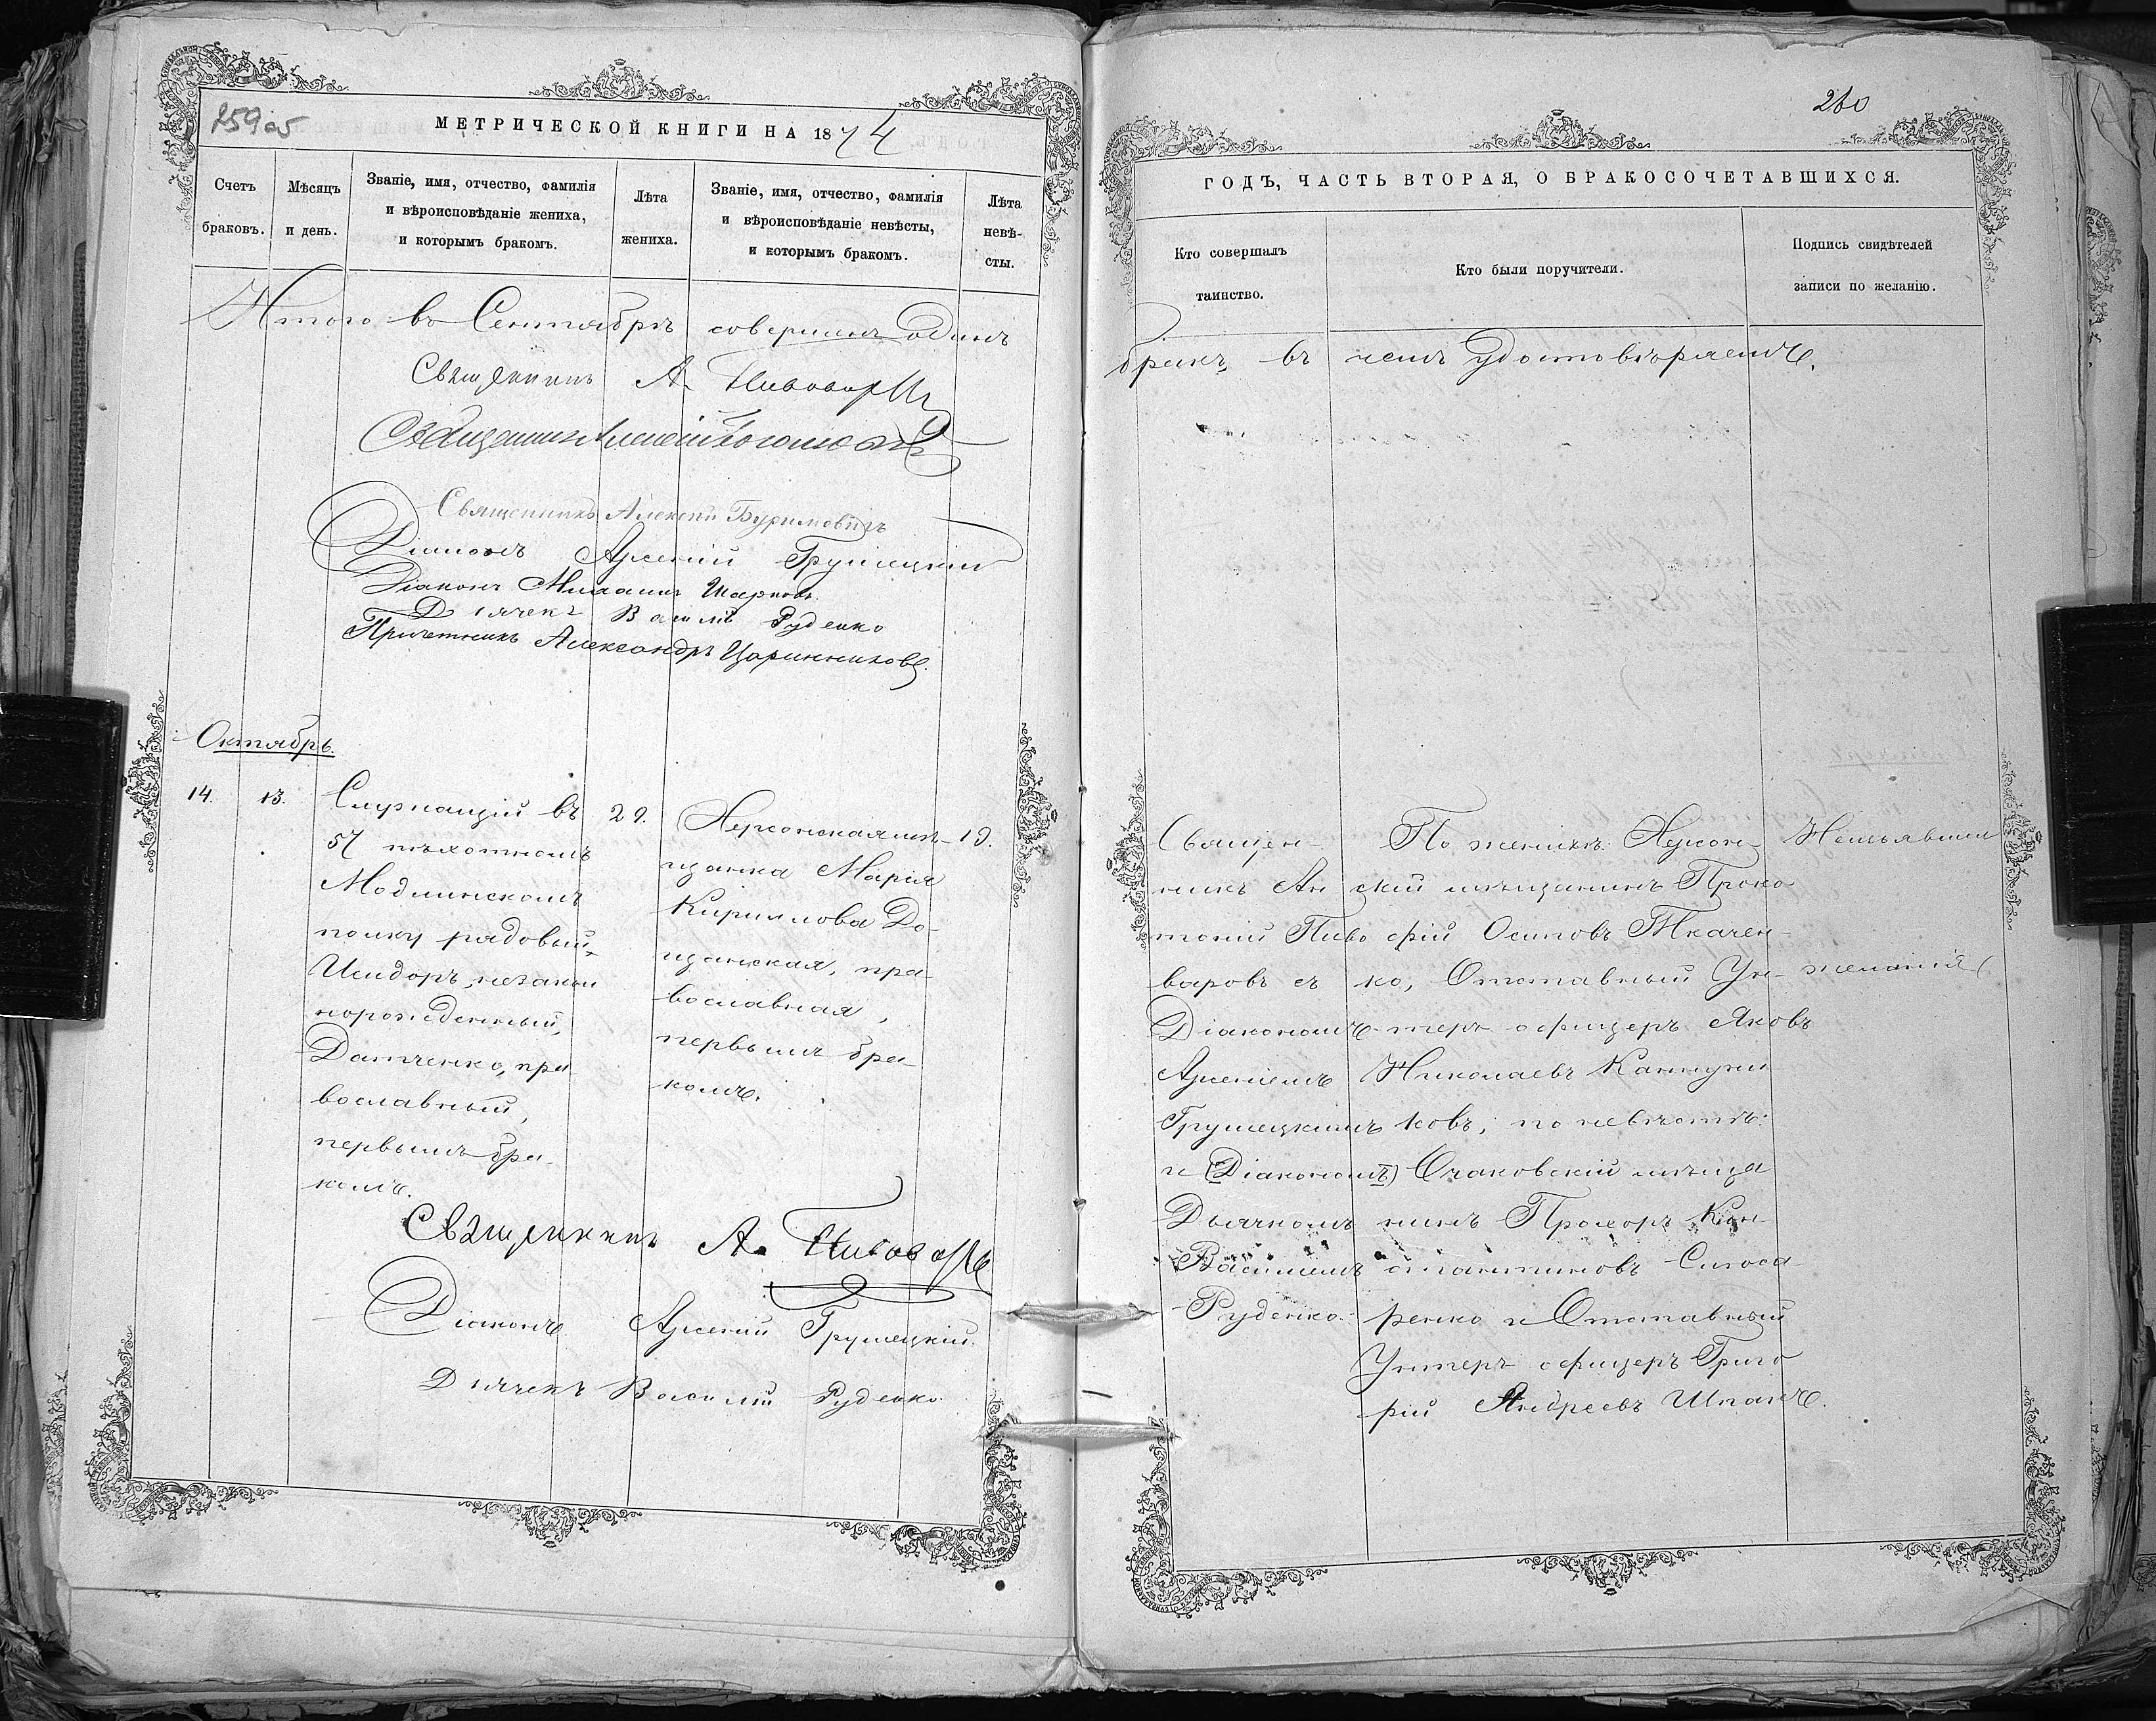 259 об
МЕТРИЧЕСКОЙ КНИГИ НА 1874
Счетъ
браковъ.
Мѣсяцъ
и день.
Званіе, имя, отчество, фамилія
и вѣроисповѣданіе жениха,
и которымъ бракомъ.
Лѣта
жениха.
Званіе, имя, отчество, фамилія
и вѣроисповѣданіе невѣсты,
и которымъ бракомъ.
Лѣта
невѣ-
сты.
Итого въ Сентябрѣ совершенъ одинъ
Священникъ А. Пивоваровъ
Священникъ Алексій
Священникъ Алексій
Діаконъ Арсеній Грушецкій
Діаконъ Михаилъ
Дьячекъ Василій Руденко
Причетникъ Александръ Царинниковъ.
Октябрь.
14.
13.
Служащій въ
57 пѣхотномъ
Модлинскомъ
полку рядовый
Исидоръ, незакон
норожденный,
Датченко, пра
вославный,
первымъ бра-
комъ.
29.
Херсонская мѣ-
щанка Марія
Кириллова До-
щанская, пра-
вославная,
первымъ бра-
комъ.
19.
Священникъ А. Пивоваровъ
Діаконъ Арсеній Грушецкій.
Дьячекъ Василій Руденко
260
ГОДЪ, ЧАСТЬ ВТОРАЯ, О БРАКОСОЧЕТАВШИХСЯ.
Кто совершалъ
таинство.
Кто были поручители.
Подпись свидѣтелей
записи по желанію.
бракъ, въ чемъ удостовѣряемъ.
Священ-
никъ Ан
тоній Пиво
варовъ съ
Діакономъ
Арсеніемъ
Грушецкимъ
и (Діакономъ)
Дьячкомъ
Василіемъ
Руденко.
По женихѣ: Херсон-
скій мѣщанинъ Проко
фій Осиповъ Ткачен-
ко, Отставный Ун-
теръ-офицеръ Яковъ
Николаевъ
ковъ; по невѣстѣ:
Очаковскій мѣща
нинъ Прохоръ Кон-
стантиновъ Слюса-
ренко и Отставный
Унтеръ-офицеръ Григо
рій Андреевъ Шпакъ.
Неизъявили
желанія